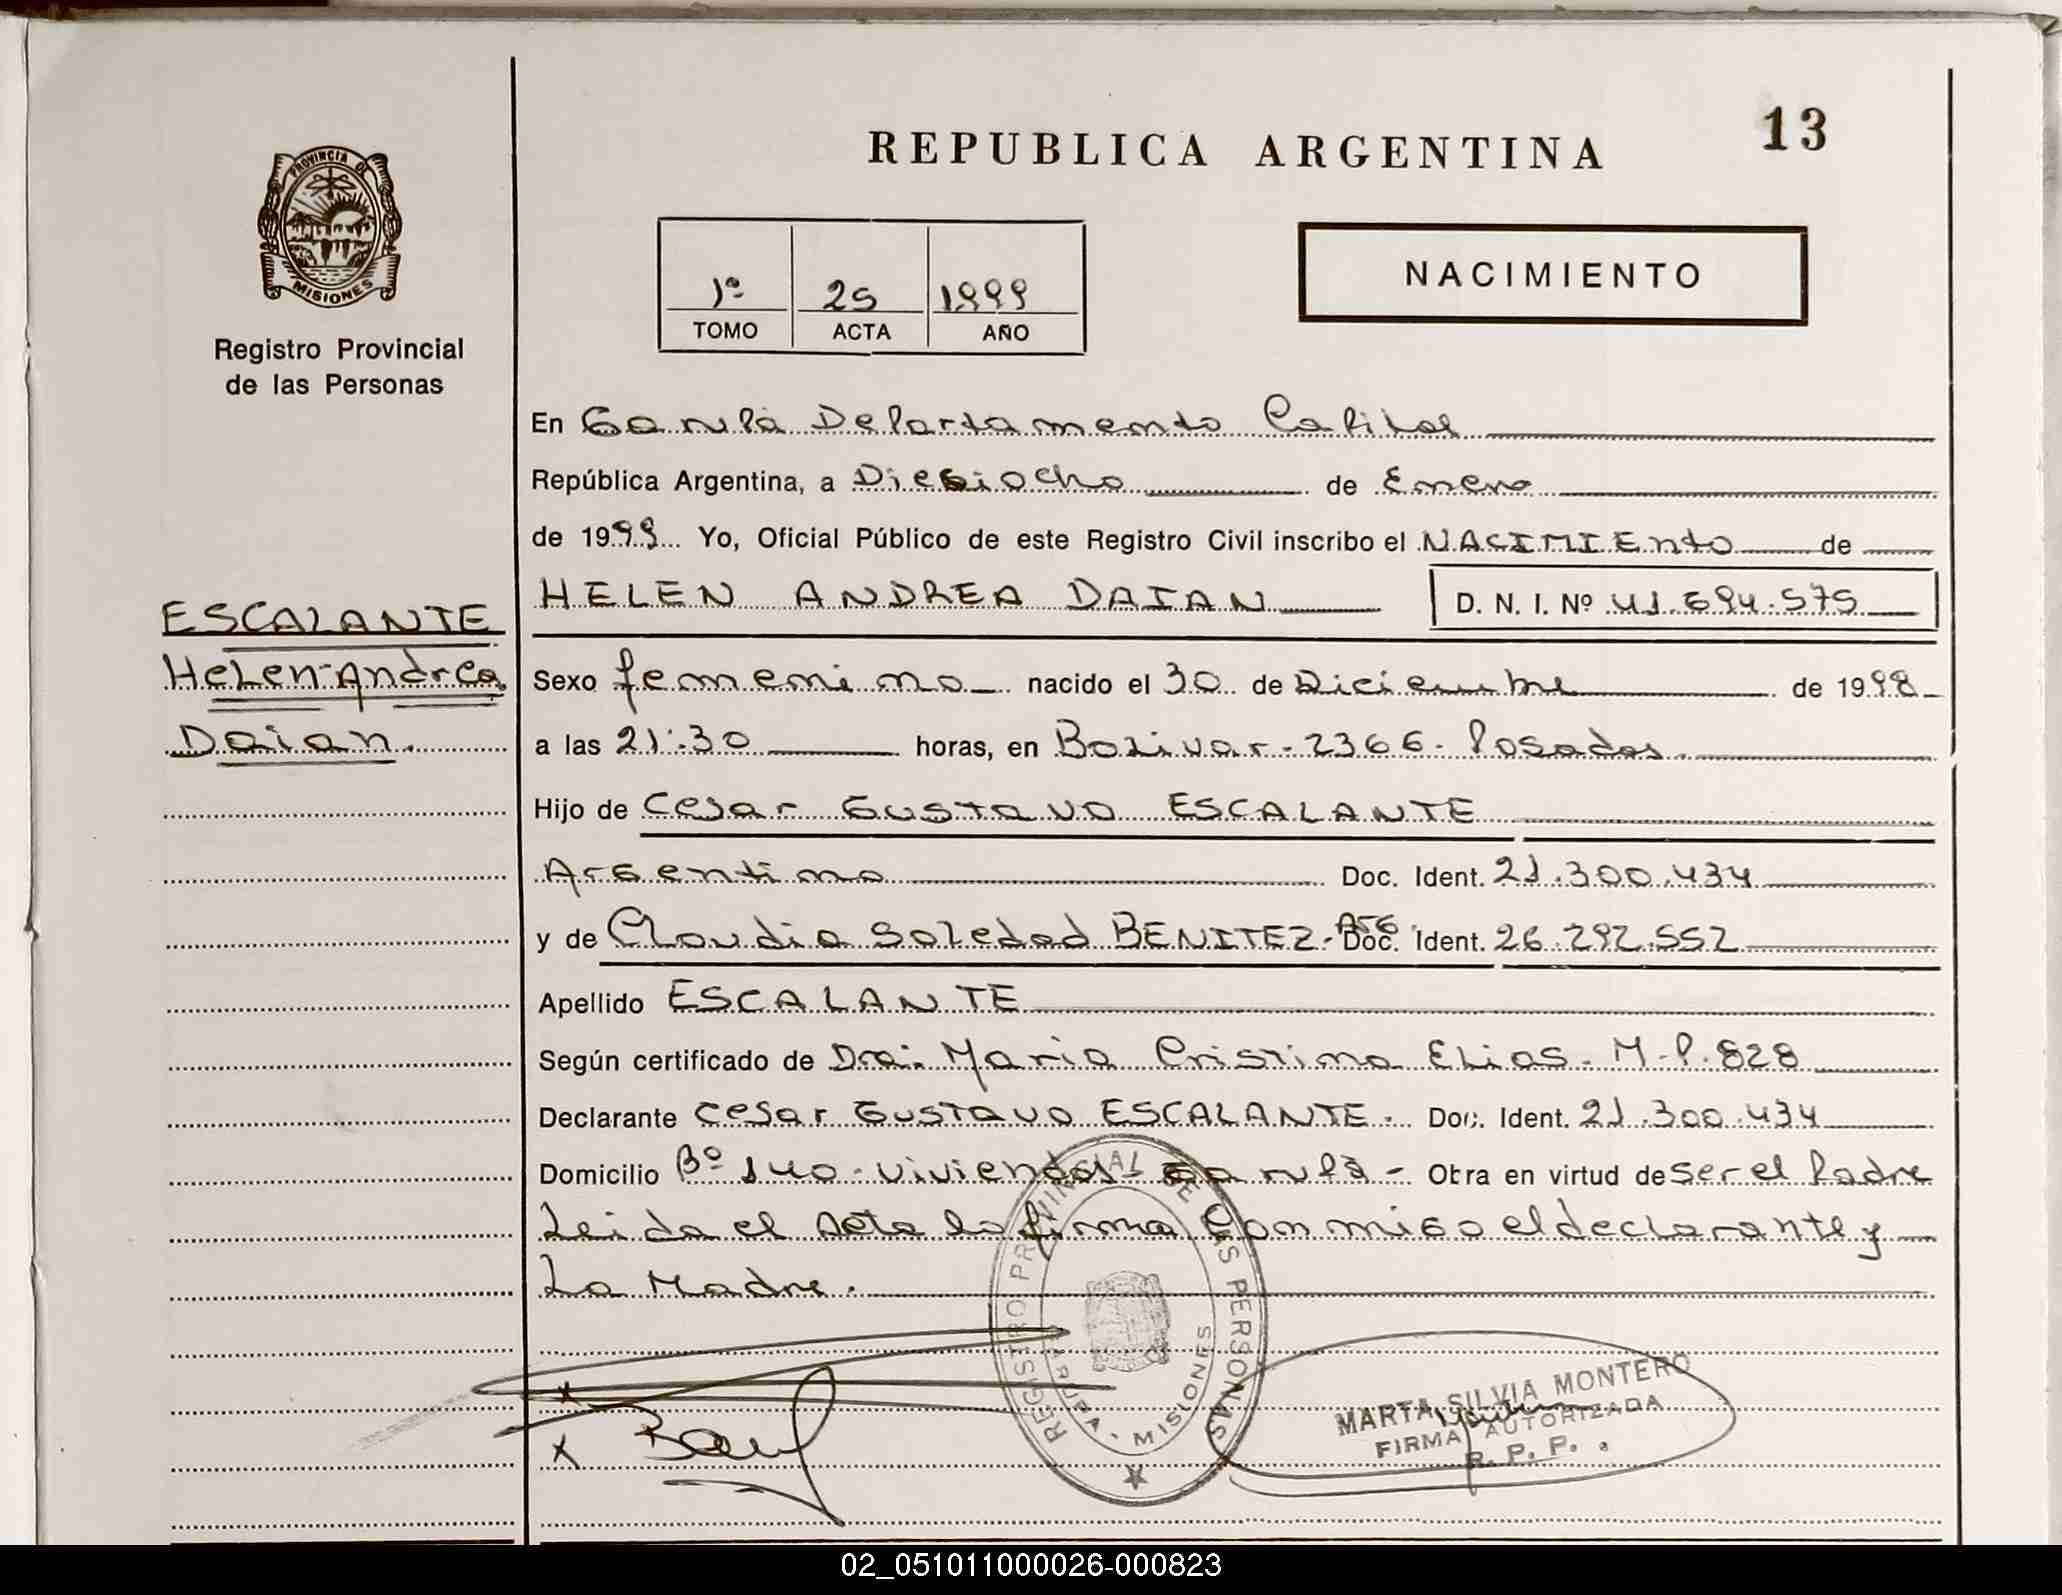 PROVINCIA DE
MISIONES
Registro Provincial
de las Personas
ESCALANTE
Helen Andrea
Daian.
REPUBLICA ARGENTINA
13
1º 25 1999
TOMO ACTA AÑO
NACIMIENTO
En Garupá Departamento Capital
República Argentina, a Dieciocho de Enero
de 1999 Yo, Oficial Público de este Registro Civil inscribo el NACIMIENTO de
HELEN ANDREA DAIAN D. N. I. Nº 41.694.575
Sexo femenino nacido el 30 de Diciembre de 1998
a las 21:30 horas, en Bolivar-2366-Posadas.
Hijo de Cesar Gustavo ESCALANTE
Argentino Doc. Ident. 21.300.434
y de Claudia Soledad BENITEZ-Arg. Doc. Ident. 26.292.552
Apellido ESCALANTE
Según certificado de Dra. Maria Cristina Elias. M.P. 828
Declarante Cesar Gustavo ESCALANTE. Doc. Ident. 21.300.434
Domicilio Bº 140-viviendas-Garupá- Obra en virtud de ser el Padre
Leida el Acta la firma Conmigo el declarante y
La Madre.
REGISTRO PROVINCIAL DE LAS PERSONAS
GARUPA - MISIONES
MARTA SILVIA MONTERO
FIRMA AUTORIZADA
R. P. P.
x
x
02_051011000026-000823